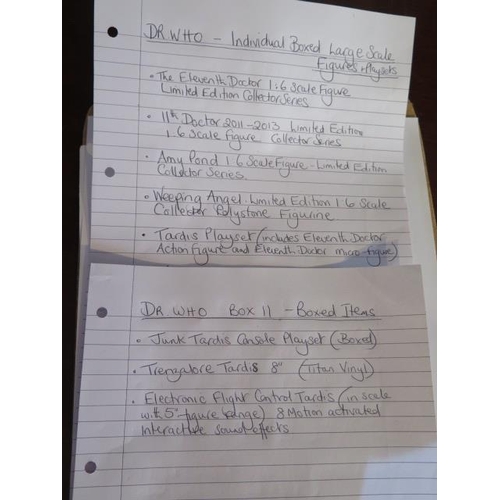 DR WHO - Individual Boxed Large Scale
Figures + Playsets
• The Eleventh Doctor 1:6 Scale Figure
Limited Edition Collector Series
• 11th Doctor 2011-2013 Limited Edition
1.6 Scale Figure Collector Series
• Amy Pond 1:6 Scale Figure - Limited Edition
Collector Series.
• Weeping Angel Limited Edition 1:6 Scale
Collector Polystone Figurine
• Tardis Playset (includes Eleventh Doctor
Action Figure and Eleventh Doctor micro-figure)
DR. WHO BOX 11 - Boxed Items
• Junk Tardis Console Playset (Boxed)
• Trenzalore Tardis 8" (Titan Vinyl)
• Electronic Flight Control Tardis (in scale
with 5" figure range) 8 Motion activated
interactive sound effects